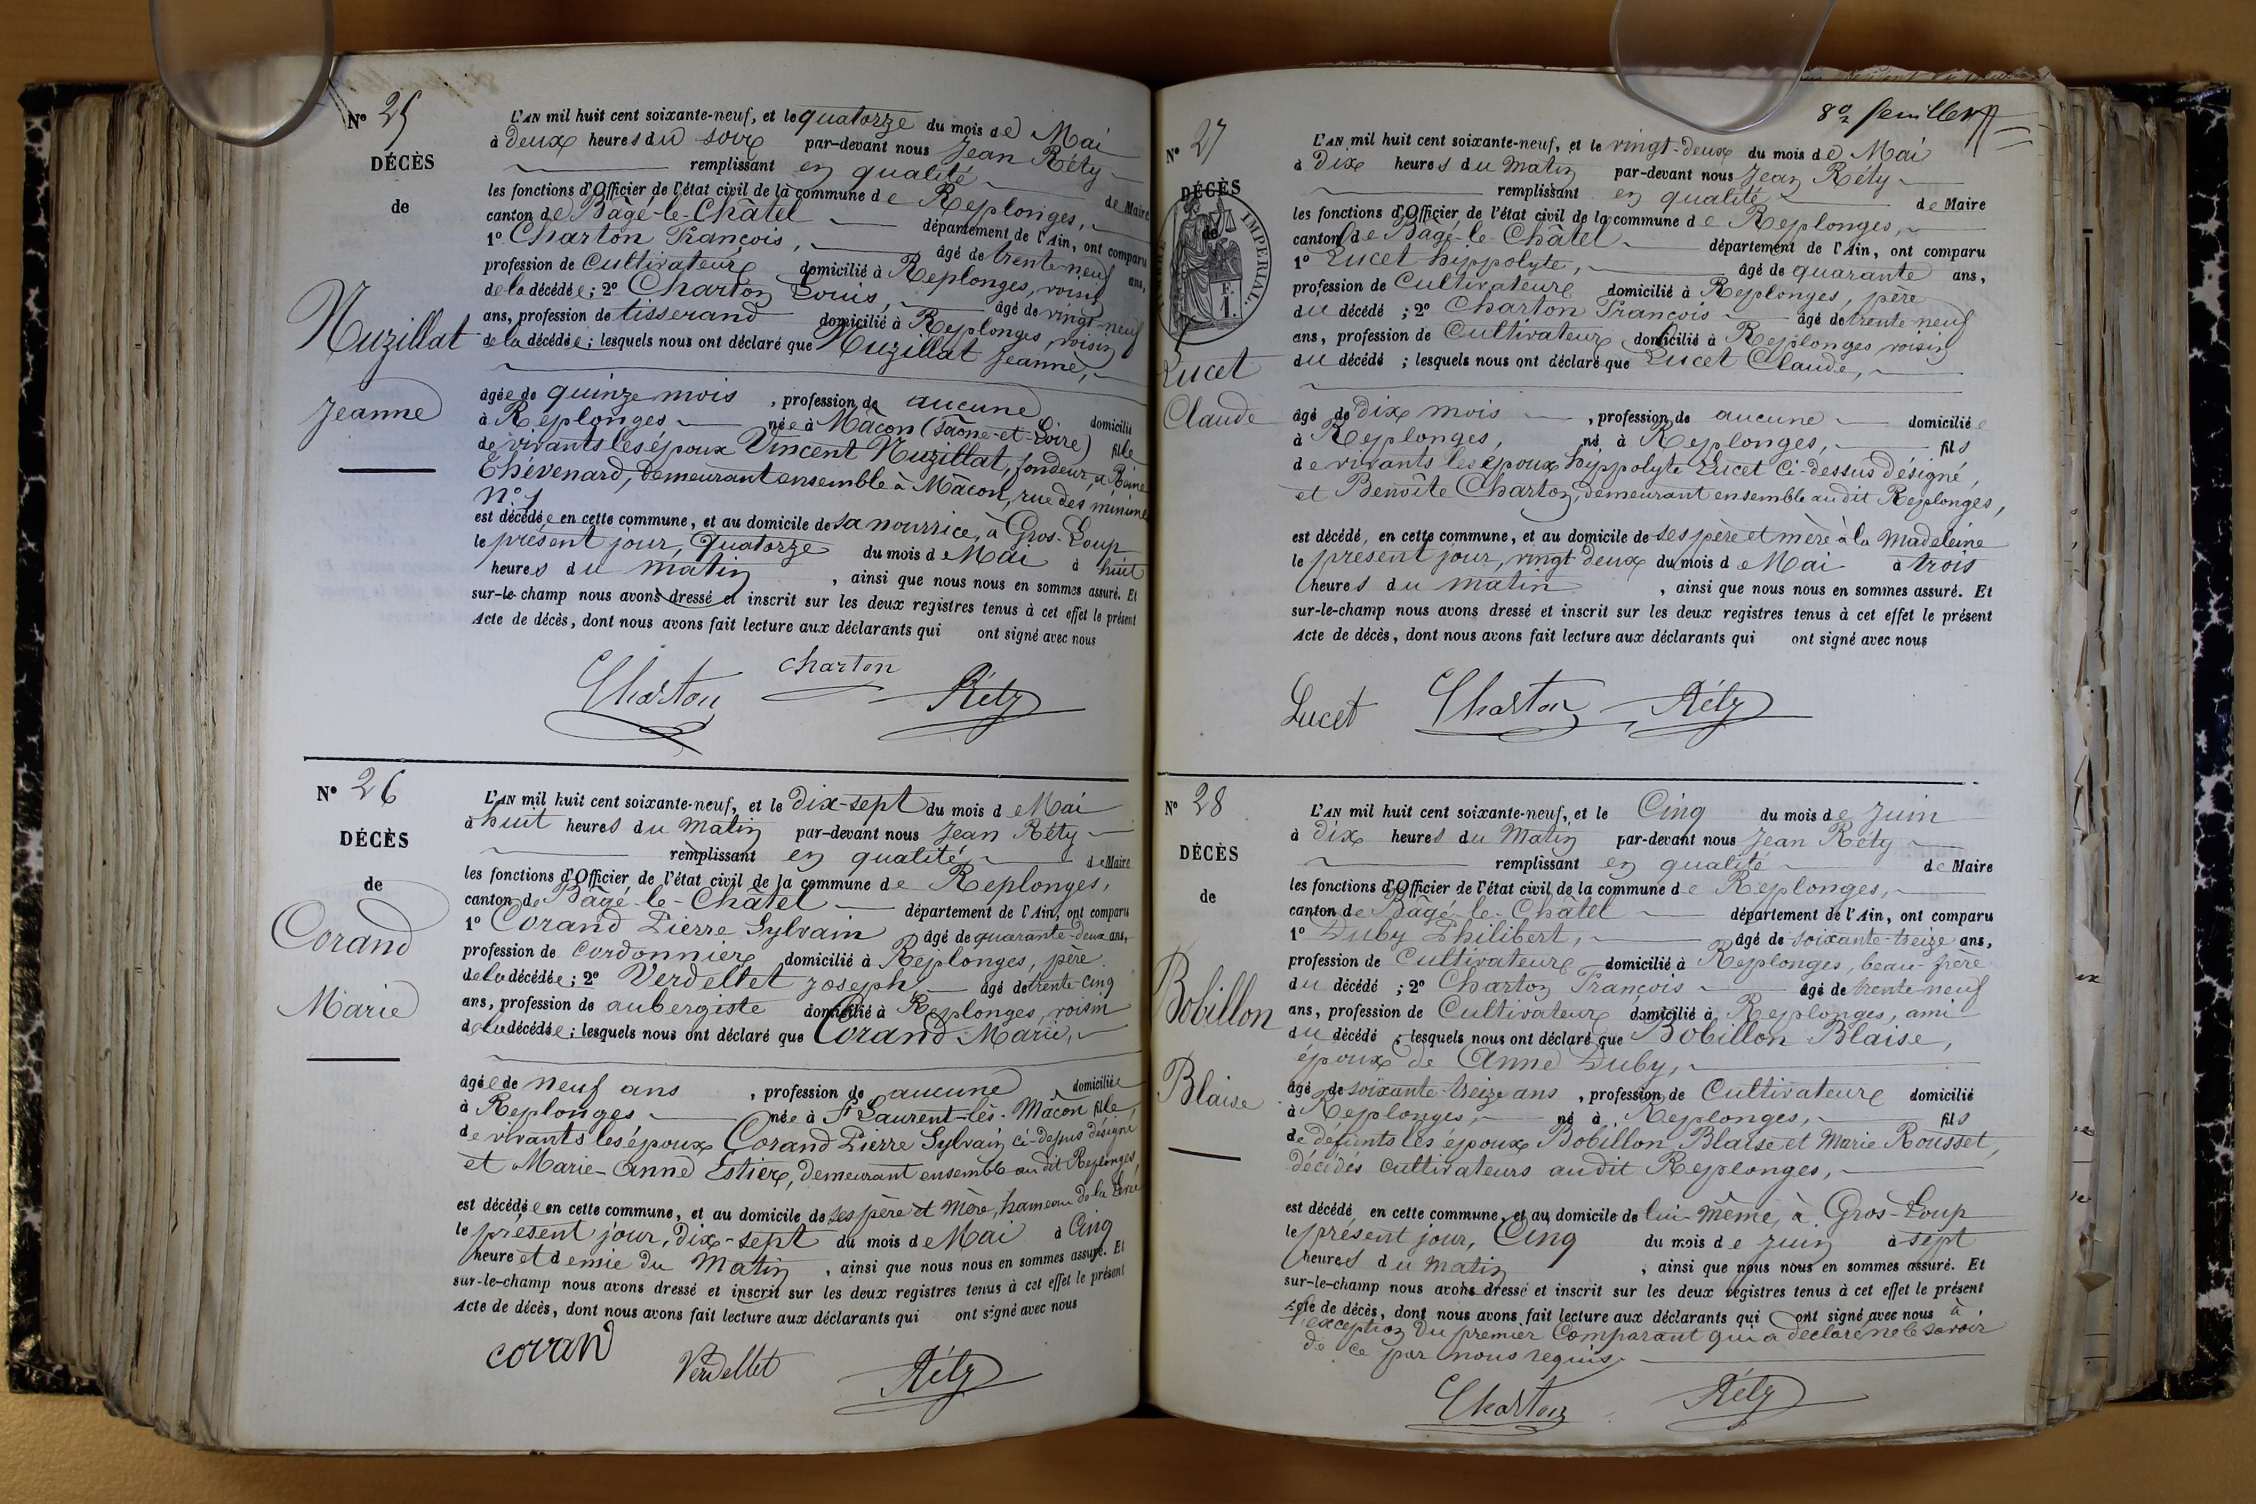 Nº 25
DÉCÈS
de
Nuzillat
Jeanne
L'AN mil huit cent soixante-neuf, et le quatorze du mois de Mai
à deux heures du soir par-devant nous Jean Réty
remplissant en qualité de Maire
les fonctions d'Officier de l'état civil de la commune de Replonges,
canton de Bâgé-le-Châtel département de l'Ain, ont comparu
1º Charton François, âgé de trente-neuf ans,
profession de Cultivateur domicilié à Replonges, voisin
de la décédée ; 2º Charton Louis, âgé de vingt-neuf
ans, profession de tisserand domicilié à Replonges voisin
de la décédée ; lesquels nous ont déclaré que Nuzillat Jeanne,
âgée de quinze mois , profession de aucune domicilié
à Replonges née à Mâcon (Saône-et-Loire) fille
de vivants les époux Vincent Nuzillat, fondeur, et Reine
Thévenard, demeurant ensemble à Mâcon, rue des minimes
Nº 1
est décédée en cette commune, et au domicile de sa nourrice, à Gros-Loup
le présent jour, Quatorze du mois de Mai à huit
heures du matin , ainsi que nous nous en sommes assuré. Et
sur-le-champ nous avons dressé et inscrit sur les deux registres tenus à cet effet le présent
Acte de décès, dont nous avons fait lecture aux déclarants qui ont signé avec nous
Charton charton Réty
Nº 26
DÉCÈS
de
Corand
Marie
L'AN mil huit cent soixante-neuf, et le Dix-sept du mois de Mai
à huit heures du Matin par-devant nous Jean Réty
remplissant en qualité de Maire
les fonctions d'Officier de l'état civil de la commune de Replonges,
canton de Bâgé-le-Châtel département de l'Ain, ont comparu
1º Corand Pierre Sylvain âgé de quarante-deux ans,
profession de Cordonnier domicilié à Replonges, père
de la décédée ; 2º Verdellet Joseph, âgé de trente cinq
ans, profession de aubergiste domicilié à Replonges, voisin
de la décédée ; lesquels nous ont déclaré que Corand Marie,
âgée de neuf ans , profession de aucune domiciliée
à Replonges née à St Laurent-lès-Mâcon fille
de vivants les époux Corand Pierre Sylvain ci-dessus désigné
et Marie-Anne Estier, demeurant ensemble au dit Replonges
est décédée en cette commune, et au domicile de ses père et mère, hameau de la
le présent jour, dix-sept du mois de Mai à Cinq
heure et demie du Matin , ainsi que nous nous en sommes assuré. Et
sur-le-champ nous avons dressé et inscrit sur les deux registres tenus à cet effet le présent
Acte de décès, dont nous avons fait lecture aux déclarants qui ont signé avec nous
coran Verdellet Réty
80 feuillet
Nº 27
DÉCÈS
de
IMPERIAL.
Lucet
Claude
L'AN mil huit cent soixante-neuf, et le vingt-deux du mois de Mai
à Dix heures du Matin par-devant nous Jean Réty
remplissant en qualité de Maire
les fonctions d'Officier de l'état civil de la commune de Replonges,
canton de Bâgé-le-Châtel département de l'Ain, ont comparu
1º Lucet hippolyte, âgé de quarante ans,
profession de Cultivateur domicilié à Replonges, père
du décédé ; 2º Charton François âgé de trente neuf
ans, profession de Cultivateur domicilié à Replonges voisin
du décédé ; lesquels nous ont déclaré que Lucet Claude,
âgé de Dix mois , profession de aucune domicilié
à Replonges, né à Replonges, fils
de vivants les époux hippolyte Lucet ci-dessus désigné,
et Benoîte Charton, demeurant ensemble audit Replonges,
est décédé, en cette commune, et au domicile de ses père et mère à la Madeleine
le présent jour, vingt deux du mois de Mai à trois
heures du matin , ainsi que nous nous en sommes assuré. Et
sur-le-champ nous avons dressé et inscrit sur les deux registres tenus à cet effet le présent
Acte de décès, dont nous avons fait lecture aux déclarants qui ont signé avec nous
Lucet Charton Réty
Nº 28
DÉCÈS
de
Bobillon
Blaise
L'AN mil huit cent soixante-neuf, et le Cinq du mois de Juin
à Dix heures du Matin par-devant nous Jean Réty
remplissant en qualité de Maire
les fonctions d'Officier de l'état civil de la commune de Replonges,
canton de Bâgé-le-Châtel département de l'Ain, ont comparu
1º Duby Philibert, âgé de soixante-treize ans,
profession de Cultivateur domicilié à Replonges, beau-frère
du décédé ; 2º Charton François âgé de trente neuf
ans, profession de Cultivateur domicilié à Replonges, ami
du décédé ; lesquels nous ont déclaré que Bobillon Blaise,
époux de Anne Duby,
âgé de soixante-treize ans , profession de Cultivateur domicilié
à Replonges, né à Replonges, fils
de défunts les époux Bobillon Blaise et Marie Rousset,
décédés cultivateurs audit Replonges,
est décédé en cette commune, et au domicile de lui-même, à Gros-Loup
le présent jour, Cinq du mois de Juin à sept
heures du Matin , ainsi que nous nous en sommes assuré. Et
sur-le-champ nous avons dressé et inscrit sur les deux registres tenus à cet effet le présent
Acte de décès, dont nous avons fait lecture aux déclarants qui ont signé avec nous à
l'exception du premier Comparant qui a déclaré ne le savoir
de ce par nous requis.
Charton Réty